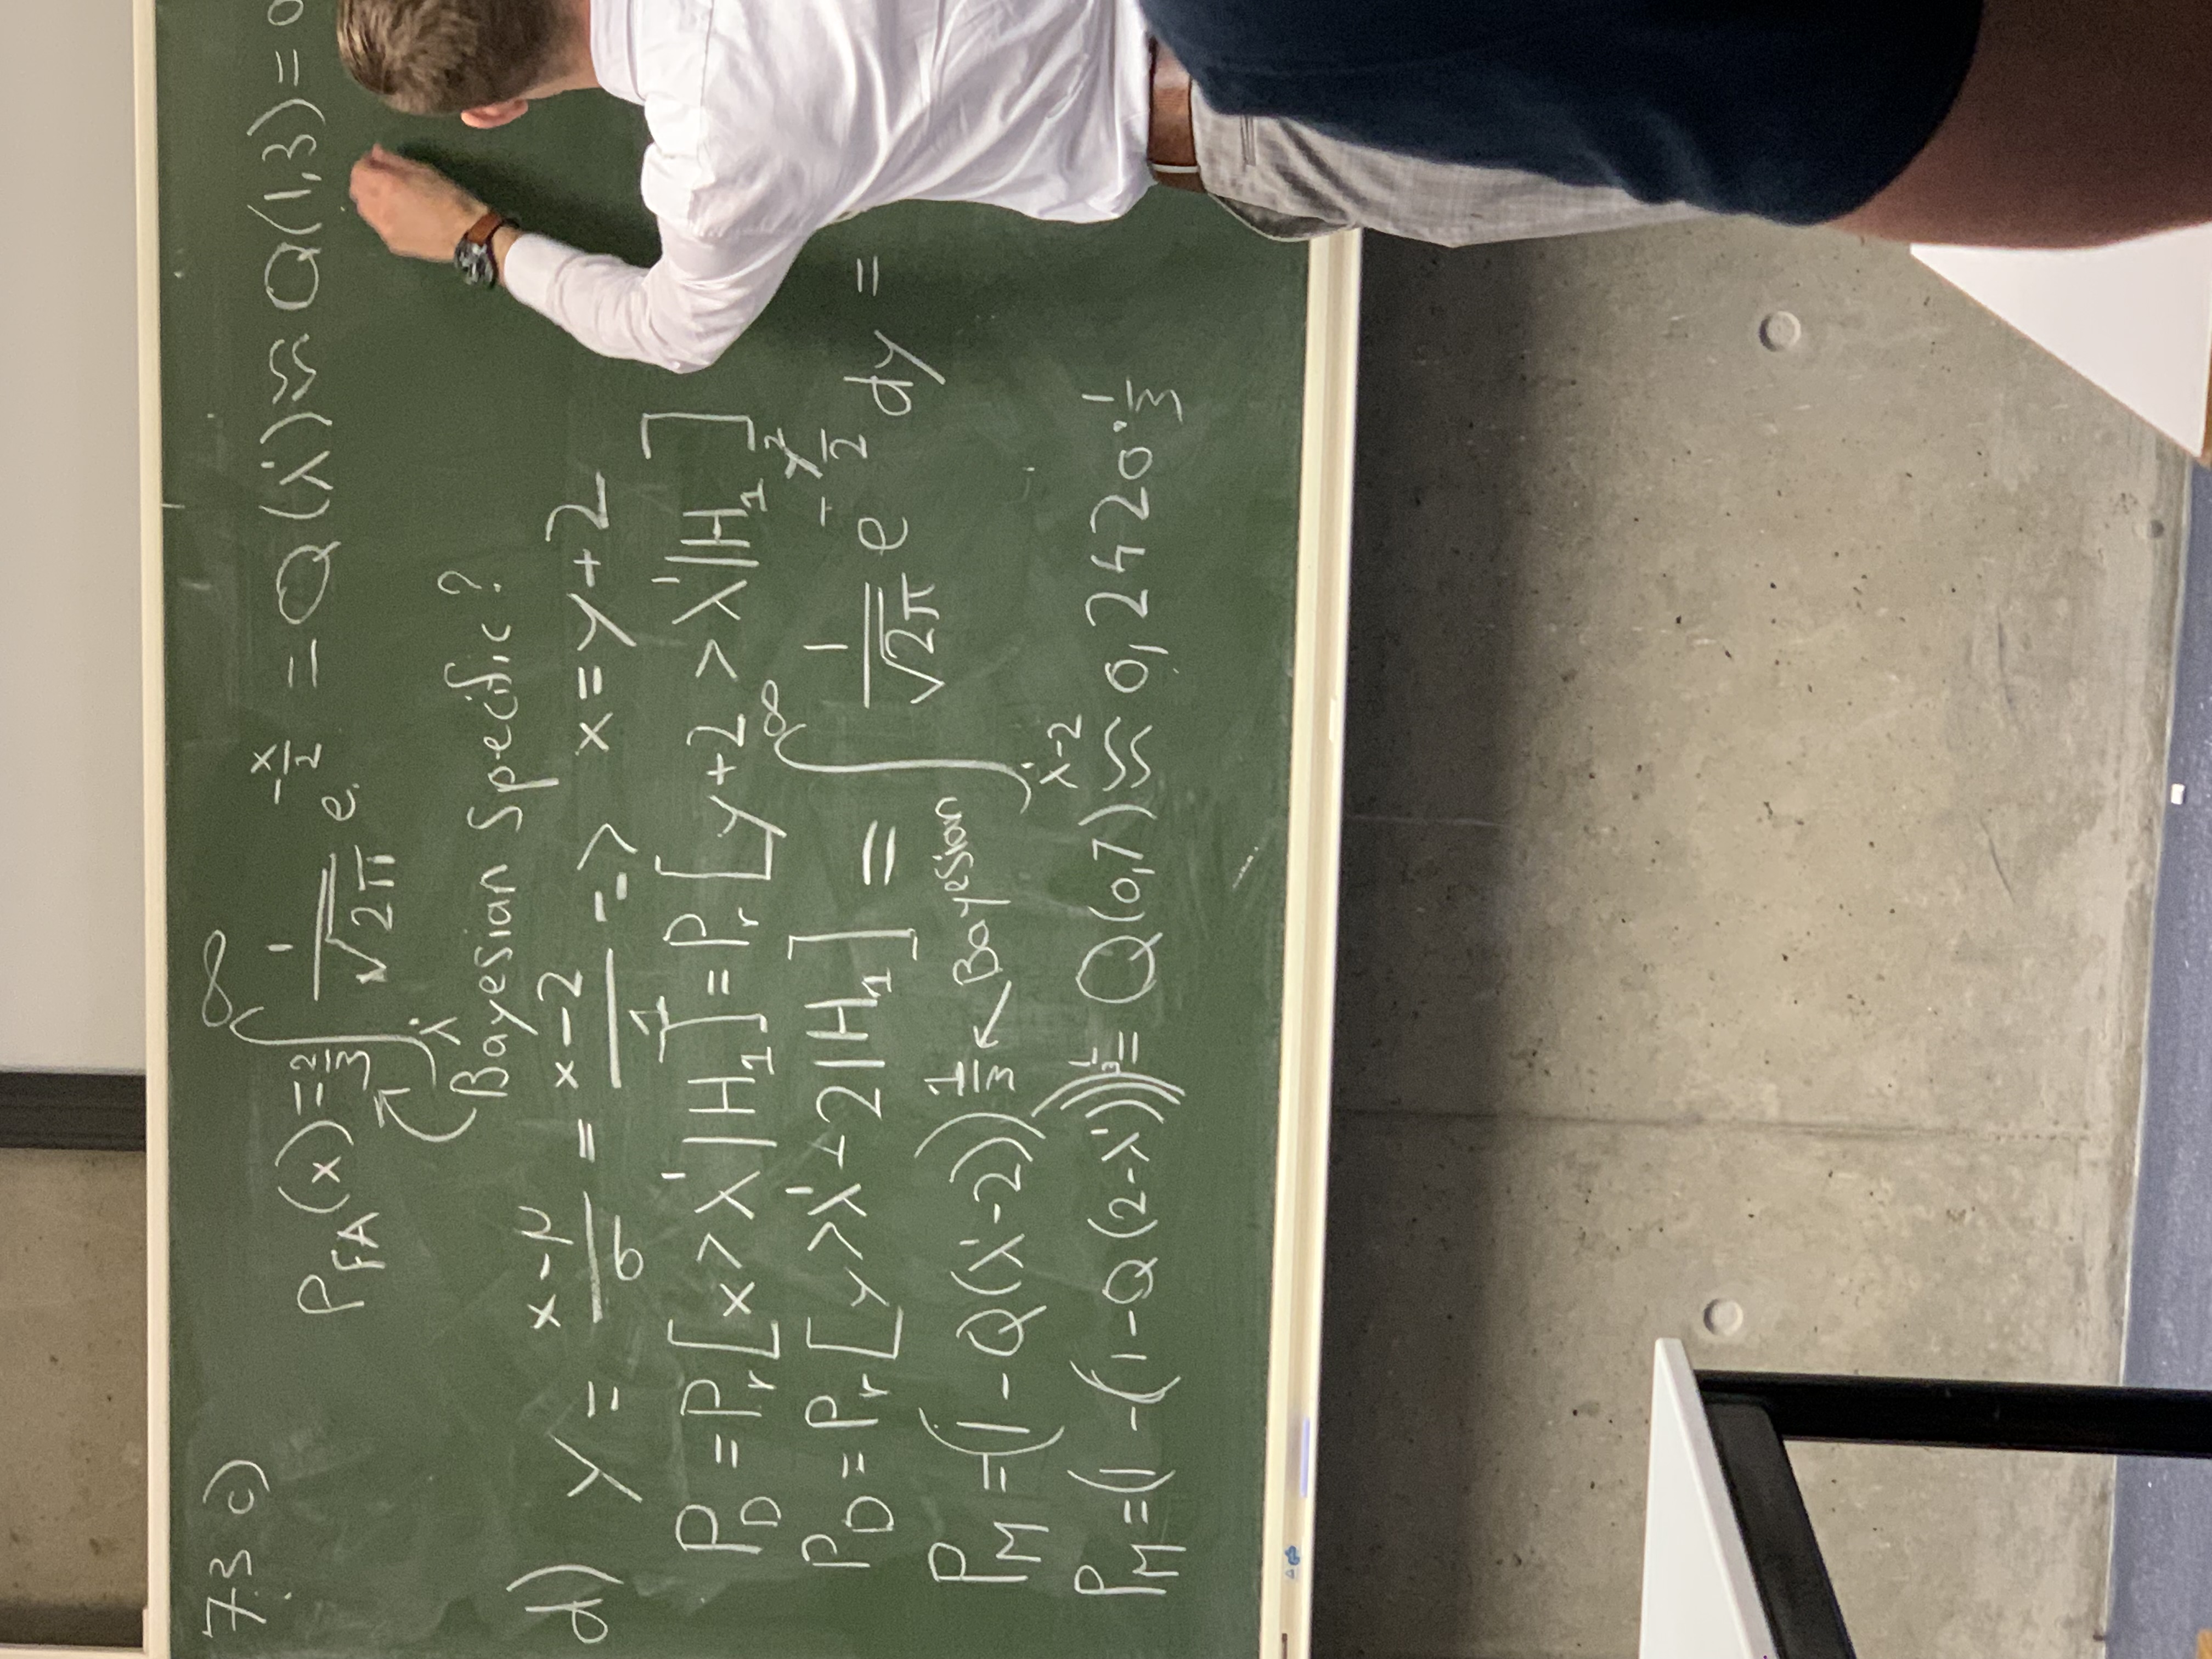 7.3 c)
P_FA(x) = 2/3 ∫_λ'^∞ 1/√2π e^(-x/2) = Q(λ') ≈ Q(1,3) = 0
Bayesian Specific?
d) y = (x-μ)/σ = (x-2)/1 => x = y+2
P_D = P_r[x > λ' | H_1] = P_r[y+2 > λ' | H_1]
P_D = P_r[y > λ'-2 | H_1] = ∫_(λ'-2)^∞ 1/√2π e^(-y²/2) dy =
P_M = (1 - Q(λ'-2)) 1/3 ← Bayesian
P_M = (1 - (1 - Q(2-λ'))) 1/3 = Q(0,7) ≈ 0,2420 · 1/3